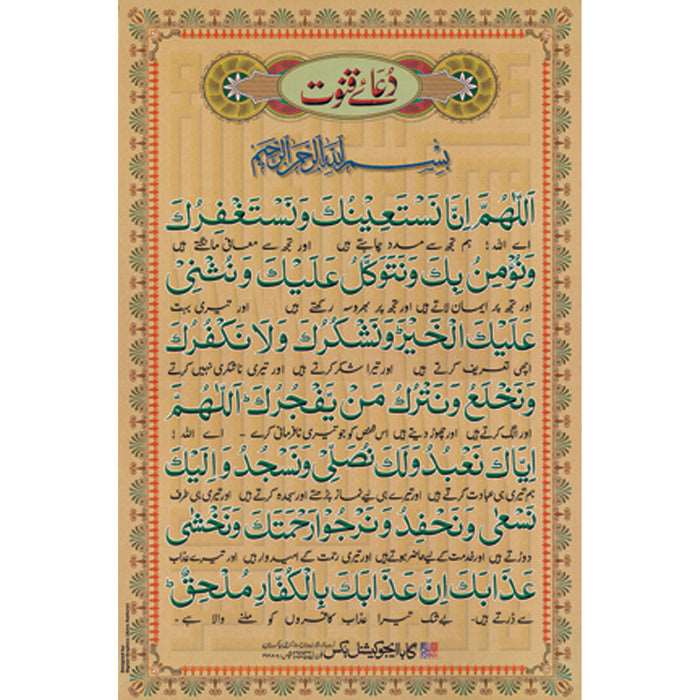 دُعَائے قنوت
بِسْمِ اللهِ الرَّحْمٰنِ الرَّحِيْمِ
اَللّٰهُمَّ اِنَّا نَسْتَعِيْنُكَ وَنَسْتَغْفِرُكَ
اے اللہ ! ہم تجھ سے مدد چاہتے ہیں اور تجھ سے معافی مانگتے ہیں
وَنُؤْمِنُ بِكَ وَنَتَوَكَّلُ عَلَيْكَ وَنُثْنِيْ
اور تجھ پر ایمان لاتے ہیں اور تجھ پر بھروسہ رکھتے ہیں اور تیری بہت
عَلَيْكَ الْخَيْرَ وَنَشْكُرُكَ وَلَا نَكْفُرُكَ
اچھی تعریف کرتے ہیں اور تیرا شکر کرتے ہیں اور تیری ناشکری نہیں کرتے
وَنَخْلَعُ وَنَتْرُكُ مَنْ يَّفْجُرُكَ اَللّٰهُمَّ
اور الگ کرتے ہیں اور چھوڑ دیتے ہیں اس شخص کو جو تیری نافرمانی کرے ۔ اے اللہ !
اِيَّاكَ نَعْبُدُ وَلَكَ نُصَلِّيْ وَنَسْجُدُ وَاِلَيْكَ
ہم تیری ہی عبادت کرتے ہیں اور تیرے ہی لیے نماز پڑھتے اور سجدہ کرتے ہیں اور تیری ہی طرف
نَسْعٰى وَنَحْفِدُ وَنَرْجُوْا رَحْمَتَكَ وَنَخْشٰى
دوڑتے ہیں اور خدمت کے لیے حاضر ہوتے ہیں اور تیری رحمت کے امیدوار ہیں اور تیرے عذاب
عَذَابَكَ اِنَّ عَذَابَكَ بِالْكُفَّارِ مُلْحِقٌ
سے ڈرتے ہیں۔ بے شک تیرا عذاب کافروں کو ملنے والا ہے ۔
گابا ایجوکیشنل بکس